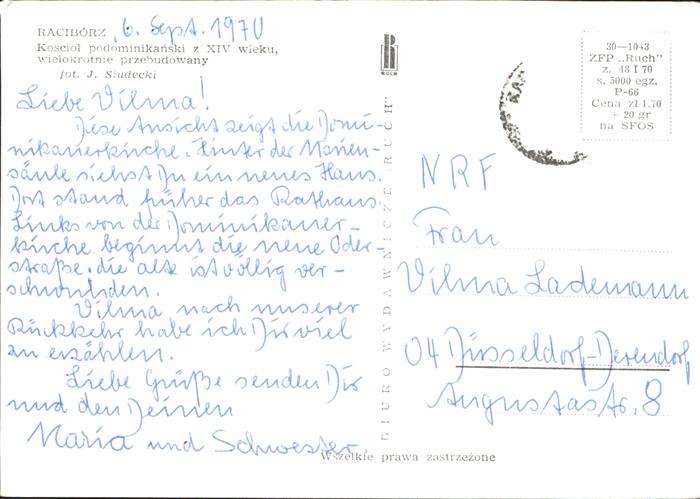 RACIBÓRZ, 6. Sept. 1970
Kościół podominikański z XIV wieku,
wielokrotnie przebudowany
fot. J. Siudecki
Liebe Vilma!
Diese Ansicht zeigt die Domi-
nikanerkirche. Hinter der Marien-
säule siehst Du ein neues Haus.
Dort stand früher das Rathaus.
Links von der Dominikaner-
kirche beginnt die neue Oder-
straße, die alte ist völlig ver-
schwunden.
Vilma nach unserer
Rückkehr habe ich Dir viel
zu erzählen.
Liebe Grüße senden Dir
und den Deinen
Maria und Schwester.
RUCH
BIURO WYDAWNICZE „RUCH"
30—1043
ZFP „Ruch"
z. 48 I 70
s. 5000 egz.
P-66
Cena zł 1.70
+ 20 gr
na SFOS
NRF
Frau
Vilma Lademann
04 Düsseldorf-Derendorf
Augustastr. 8
Wszelkie prawa zastrzeżone